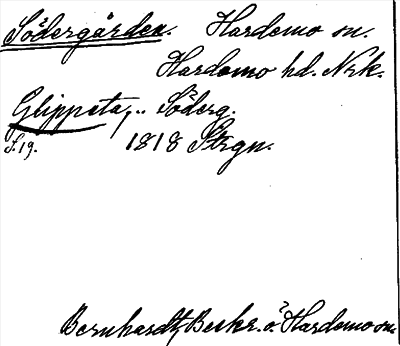 Södergården. Hardemo sn.
Hardemo hd. Nrk.
Glippeta, .. Söderg.
S. 19. 1818 Strgn.
Bernhardt, Beskr. ö. Hardemo sn.